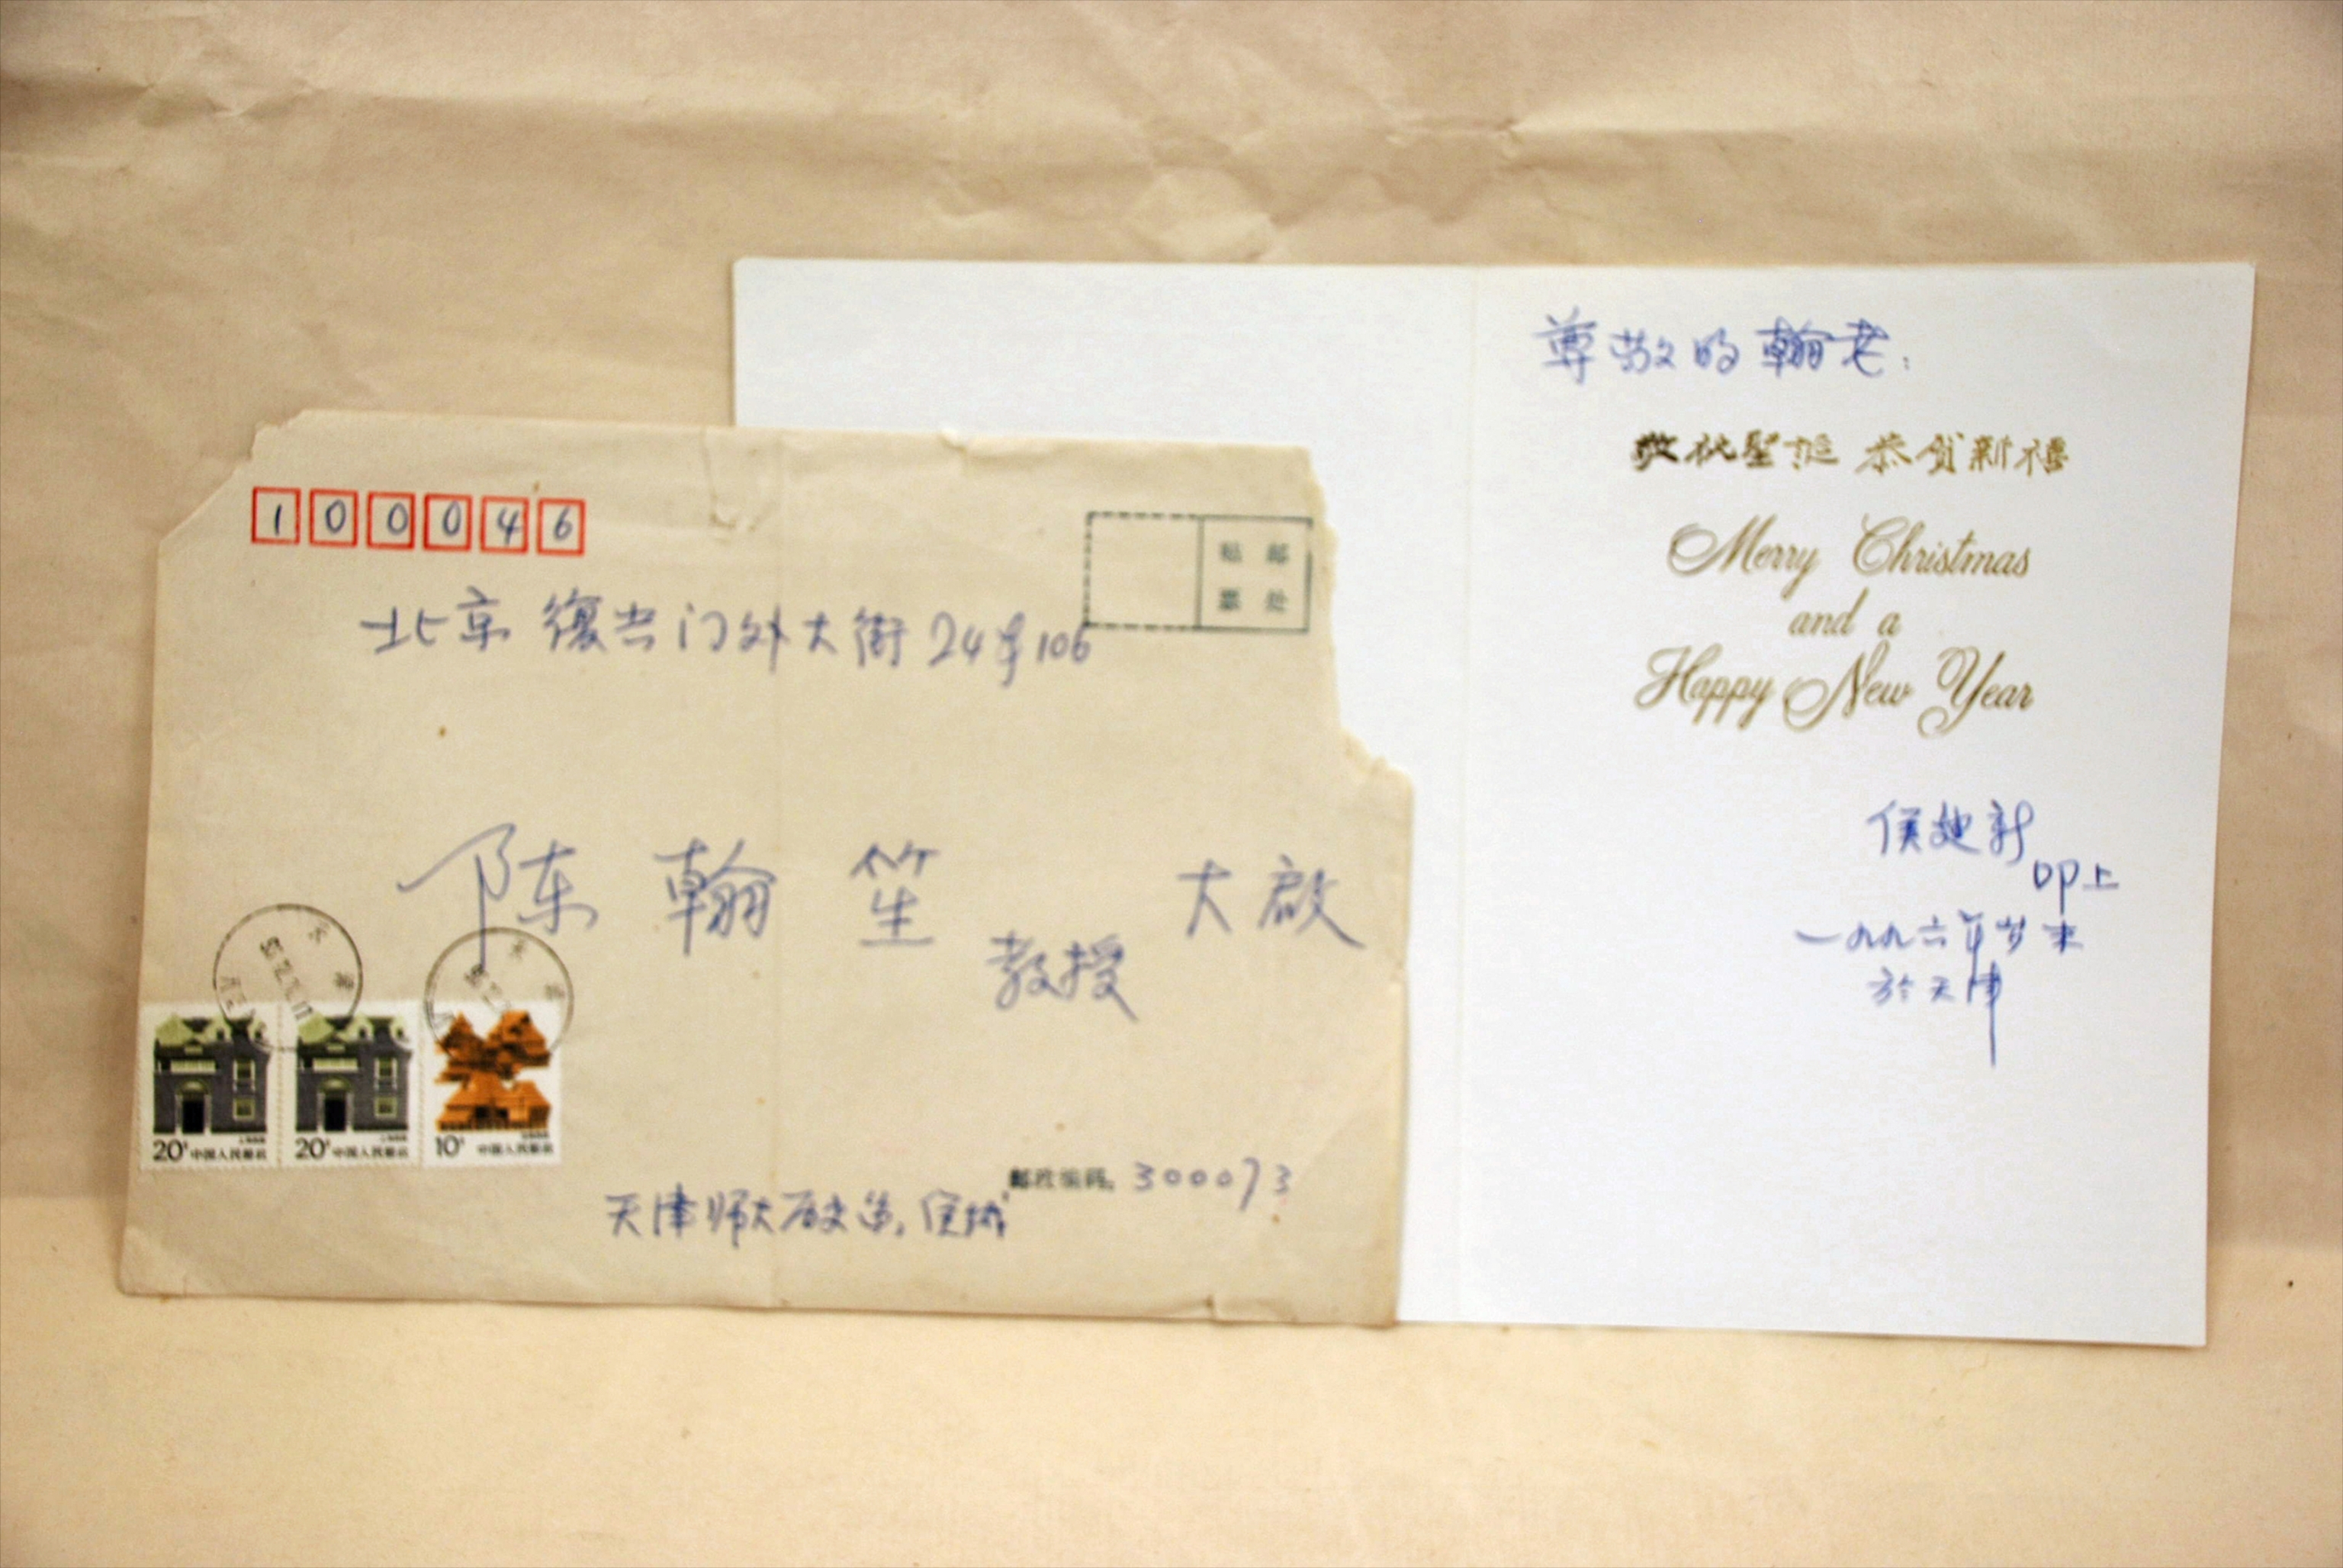 100046
贴邮
票处
北京 復兴门外大街24号106
陈翰笙 教授 大啟
20分 中国人民邮政
20分 中国人民邮政
10分 中国人民邮政
邮政编码: 300073
天津师大历史系, 侯
尊敬的翰老:
敬祝聖誕 恭贺新禧
Merry Christmas
and a
Happy New Year
侯建新
叩上
一九九六年岁末
於天津